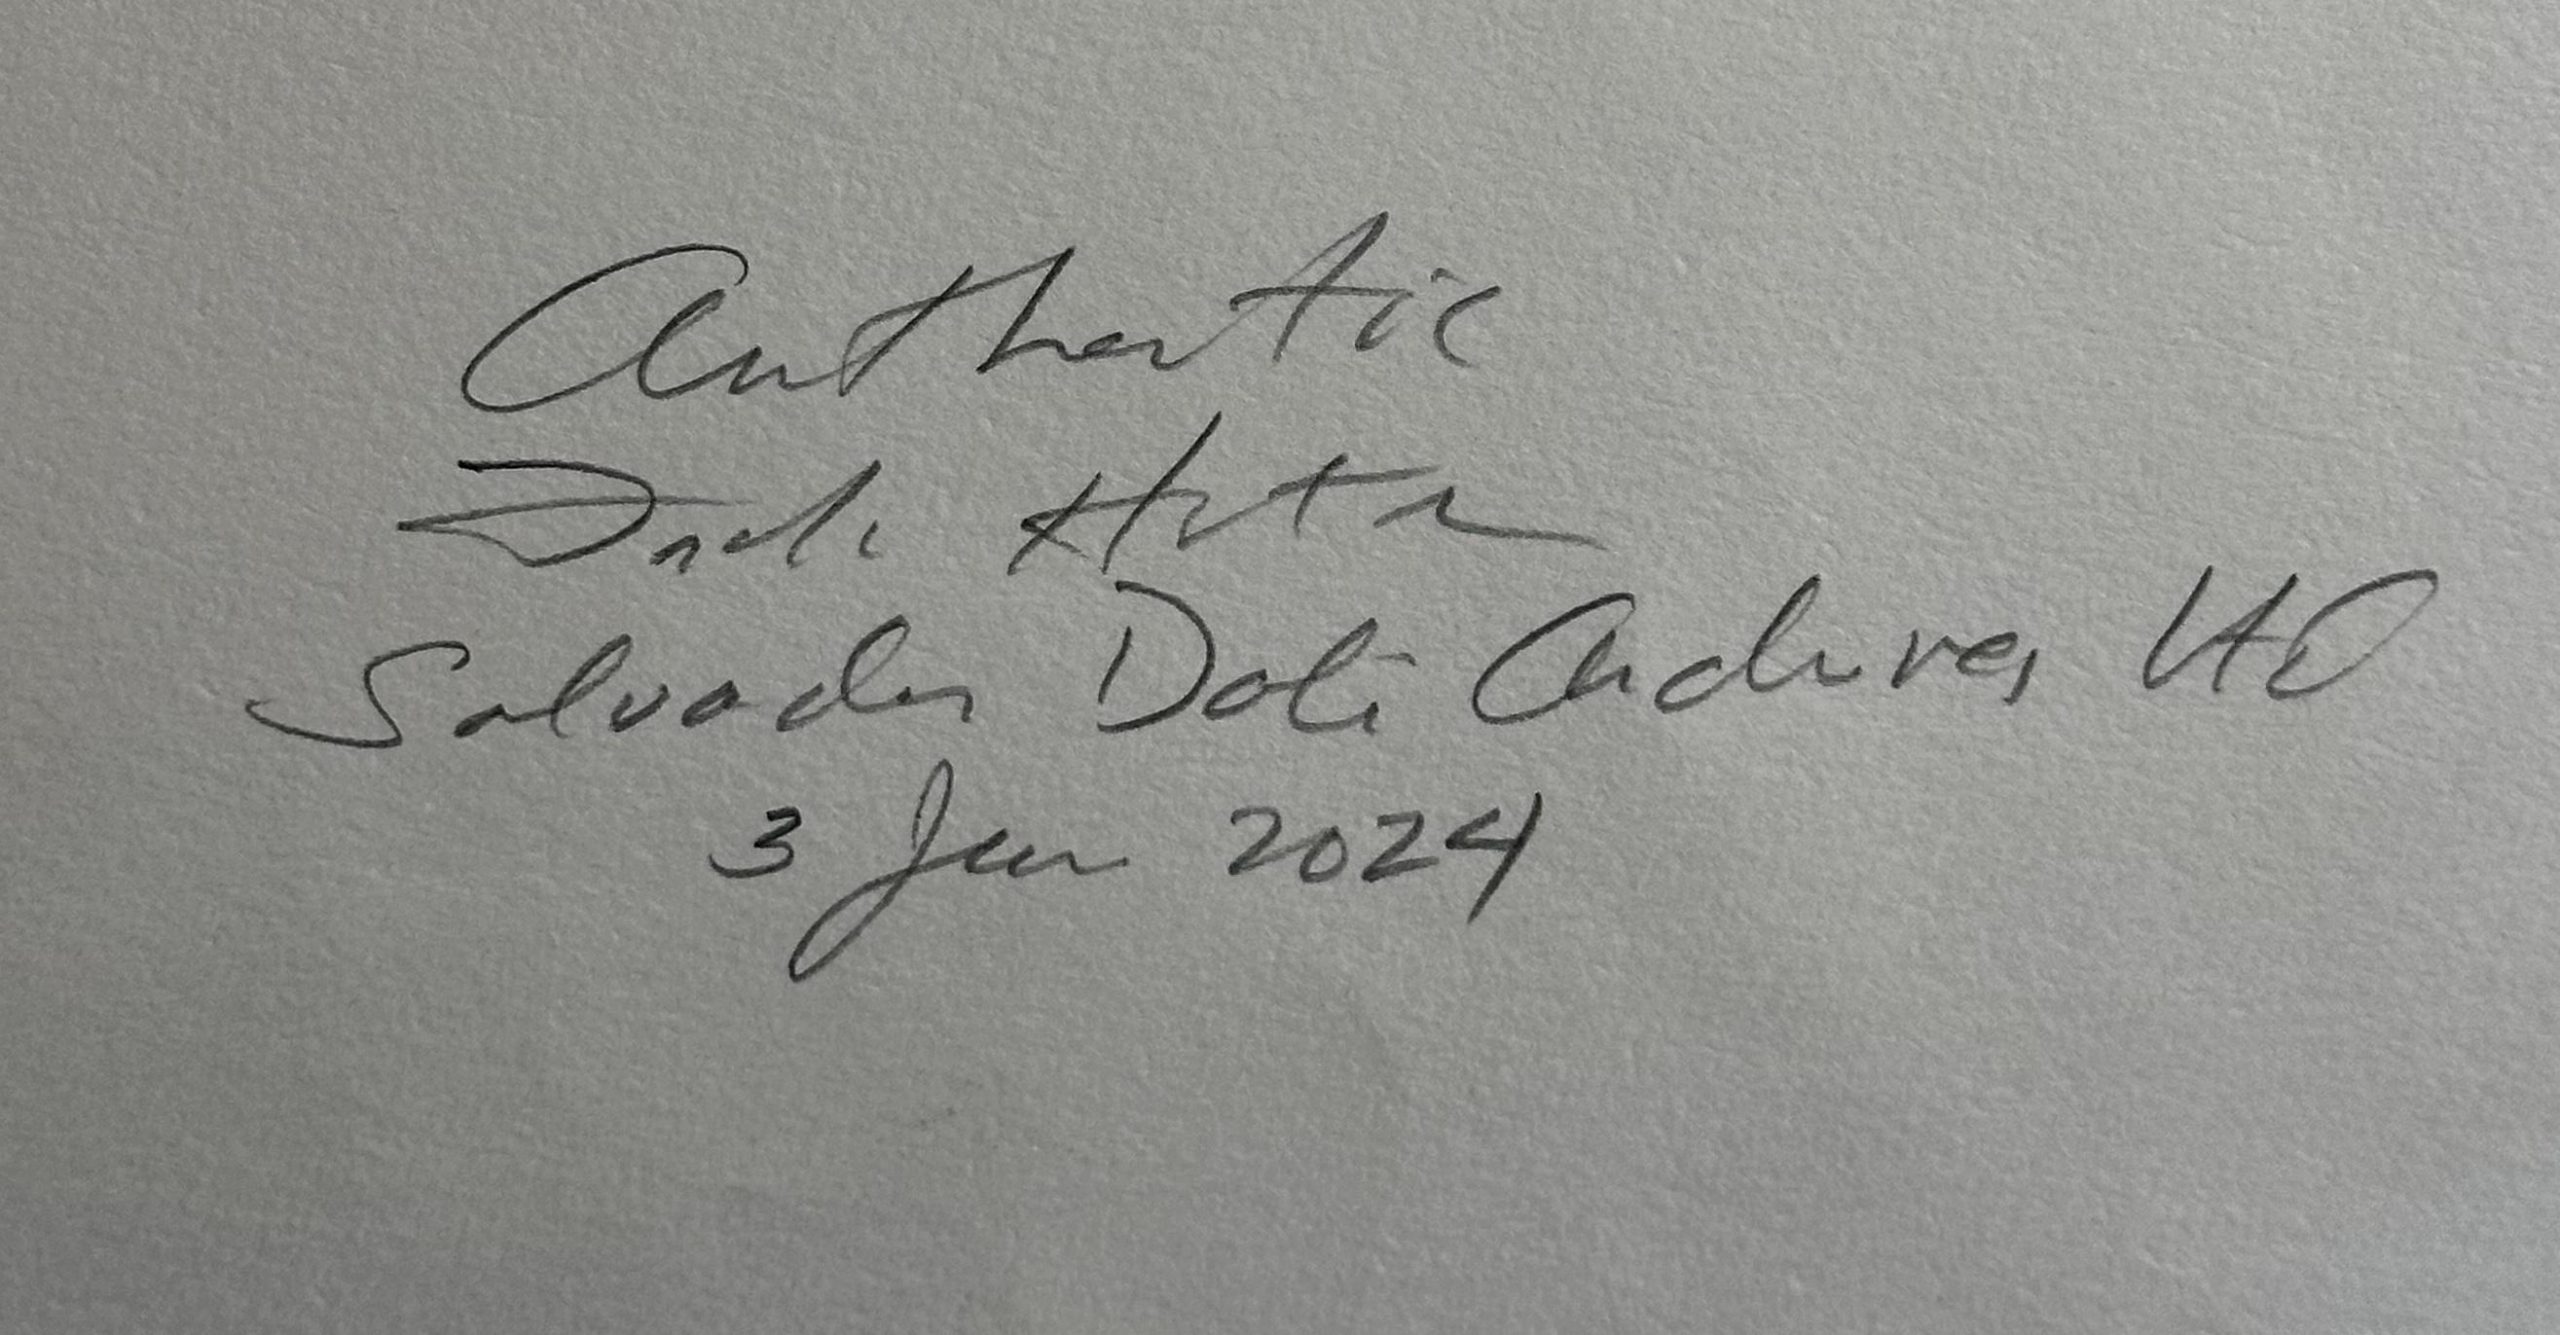 Authentic
Frank Hunter
Salvador Dali Archives LTD
3 Jan 2024